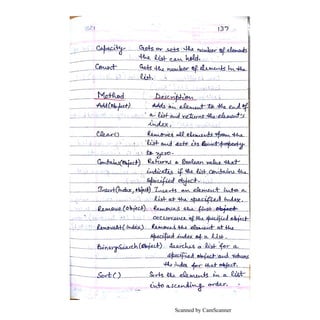 137
Capacity Gets or sets the number of elements
the list can hold.
Count Gets the number of elements in the
list.
Method Description
Add(Object) Adds an element to the end of
a list and returns the element's
index.
Clear() Removes all elements from the
list and sets its Count property
to zero.
Contains(Object) Returns a Boolean value that
indicates if the list contains the
specified object.
Insert(index, object) Inserts an element into a
list at the specified index.
Remove(Object) Removes the first object
occurrence of the specified object
RemoveAt(index) Removes the element at the
specified index of a list.
BinarySearch(Object) Searches a list for a
specified object and returns
the index for that object.
Sort() Sorts the elements in a list
into ascending order.
Scanned by CamScanner